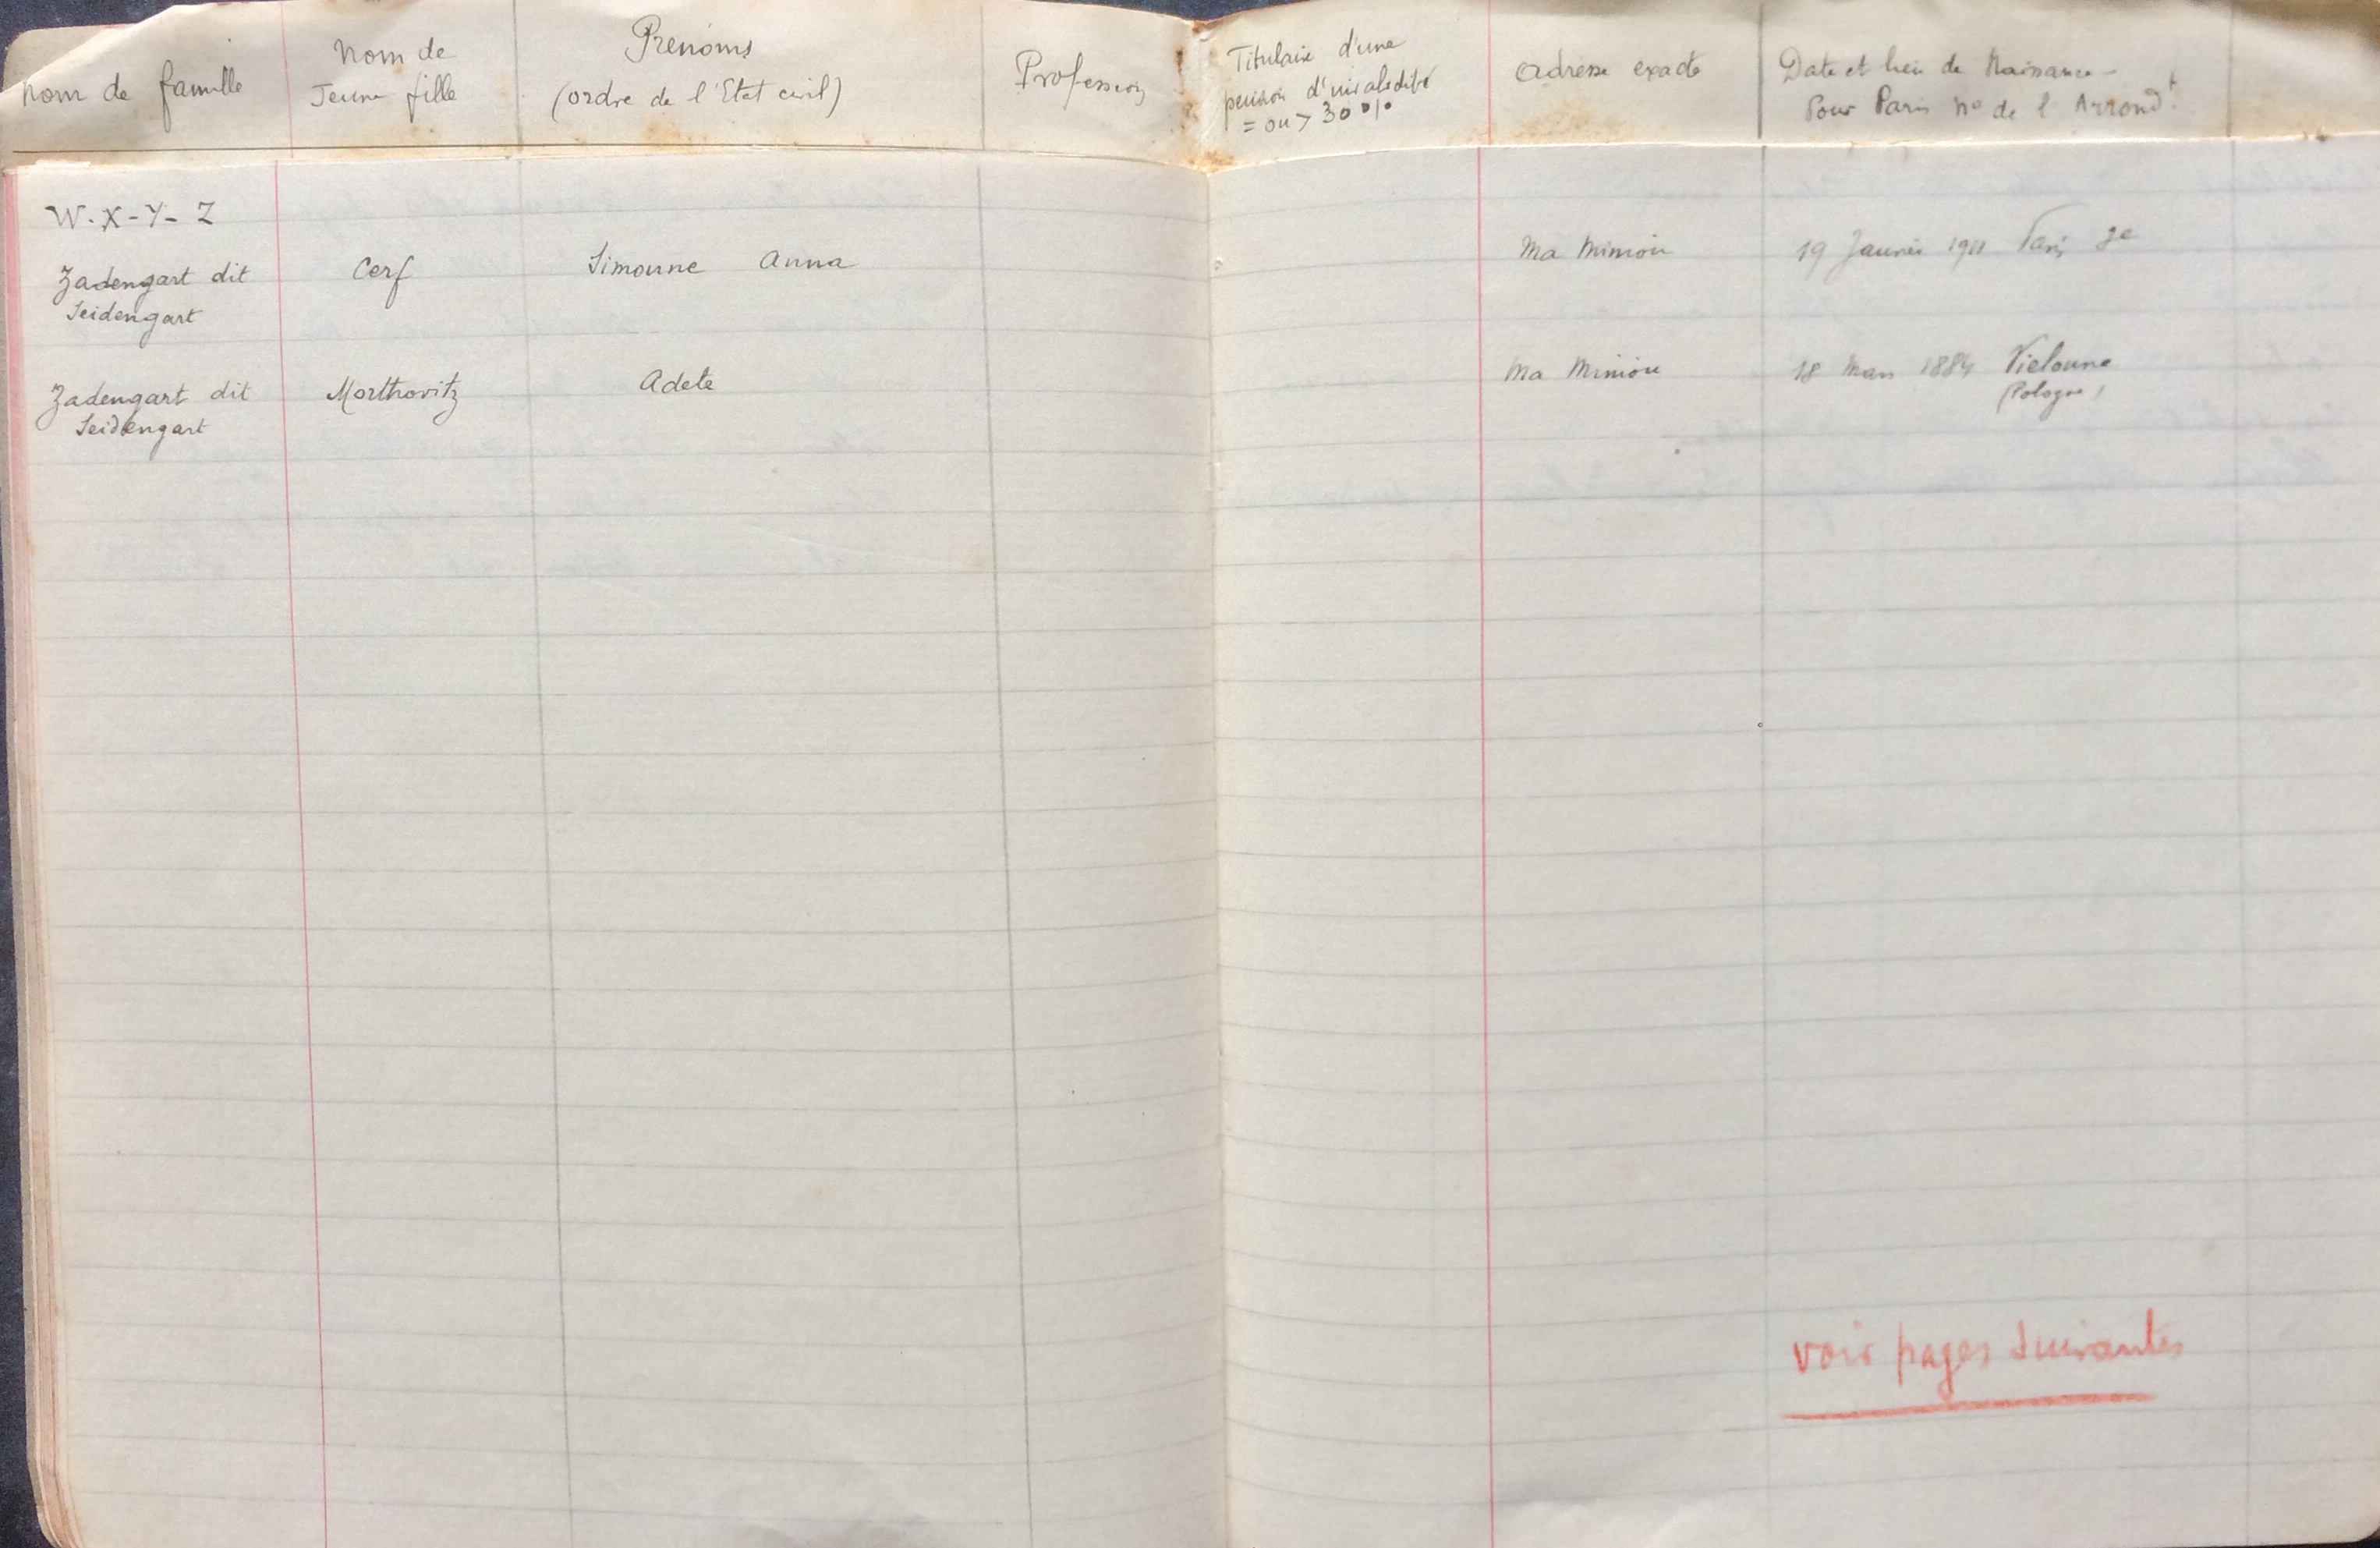 Nom de famille
Nom de
Jeune fille
Prenoms
(ordre de l'Etat civil)
Profession
Titulaire d'une
pension d'invalidité
= ou > 30 %
Adresse exacte
Date et lieu de Naissance -
Pour Paris N° de l'Arrondt.
W. X - Y - Z
Zadengart dit
Seidengart
Cerf
Simonne Anna
Ma Mimoie
19 Janvier 1911 Paris
Zadengart dit
Seidengart
Morthovitz
Adele
Ma Mimoie
18 Mars 1884 Vielonne
(Pologne)
voir pages suivantes